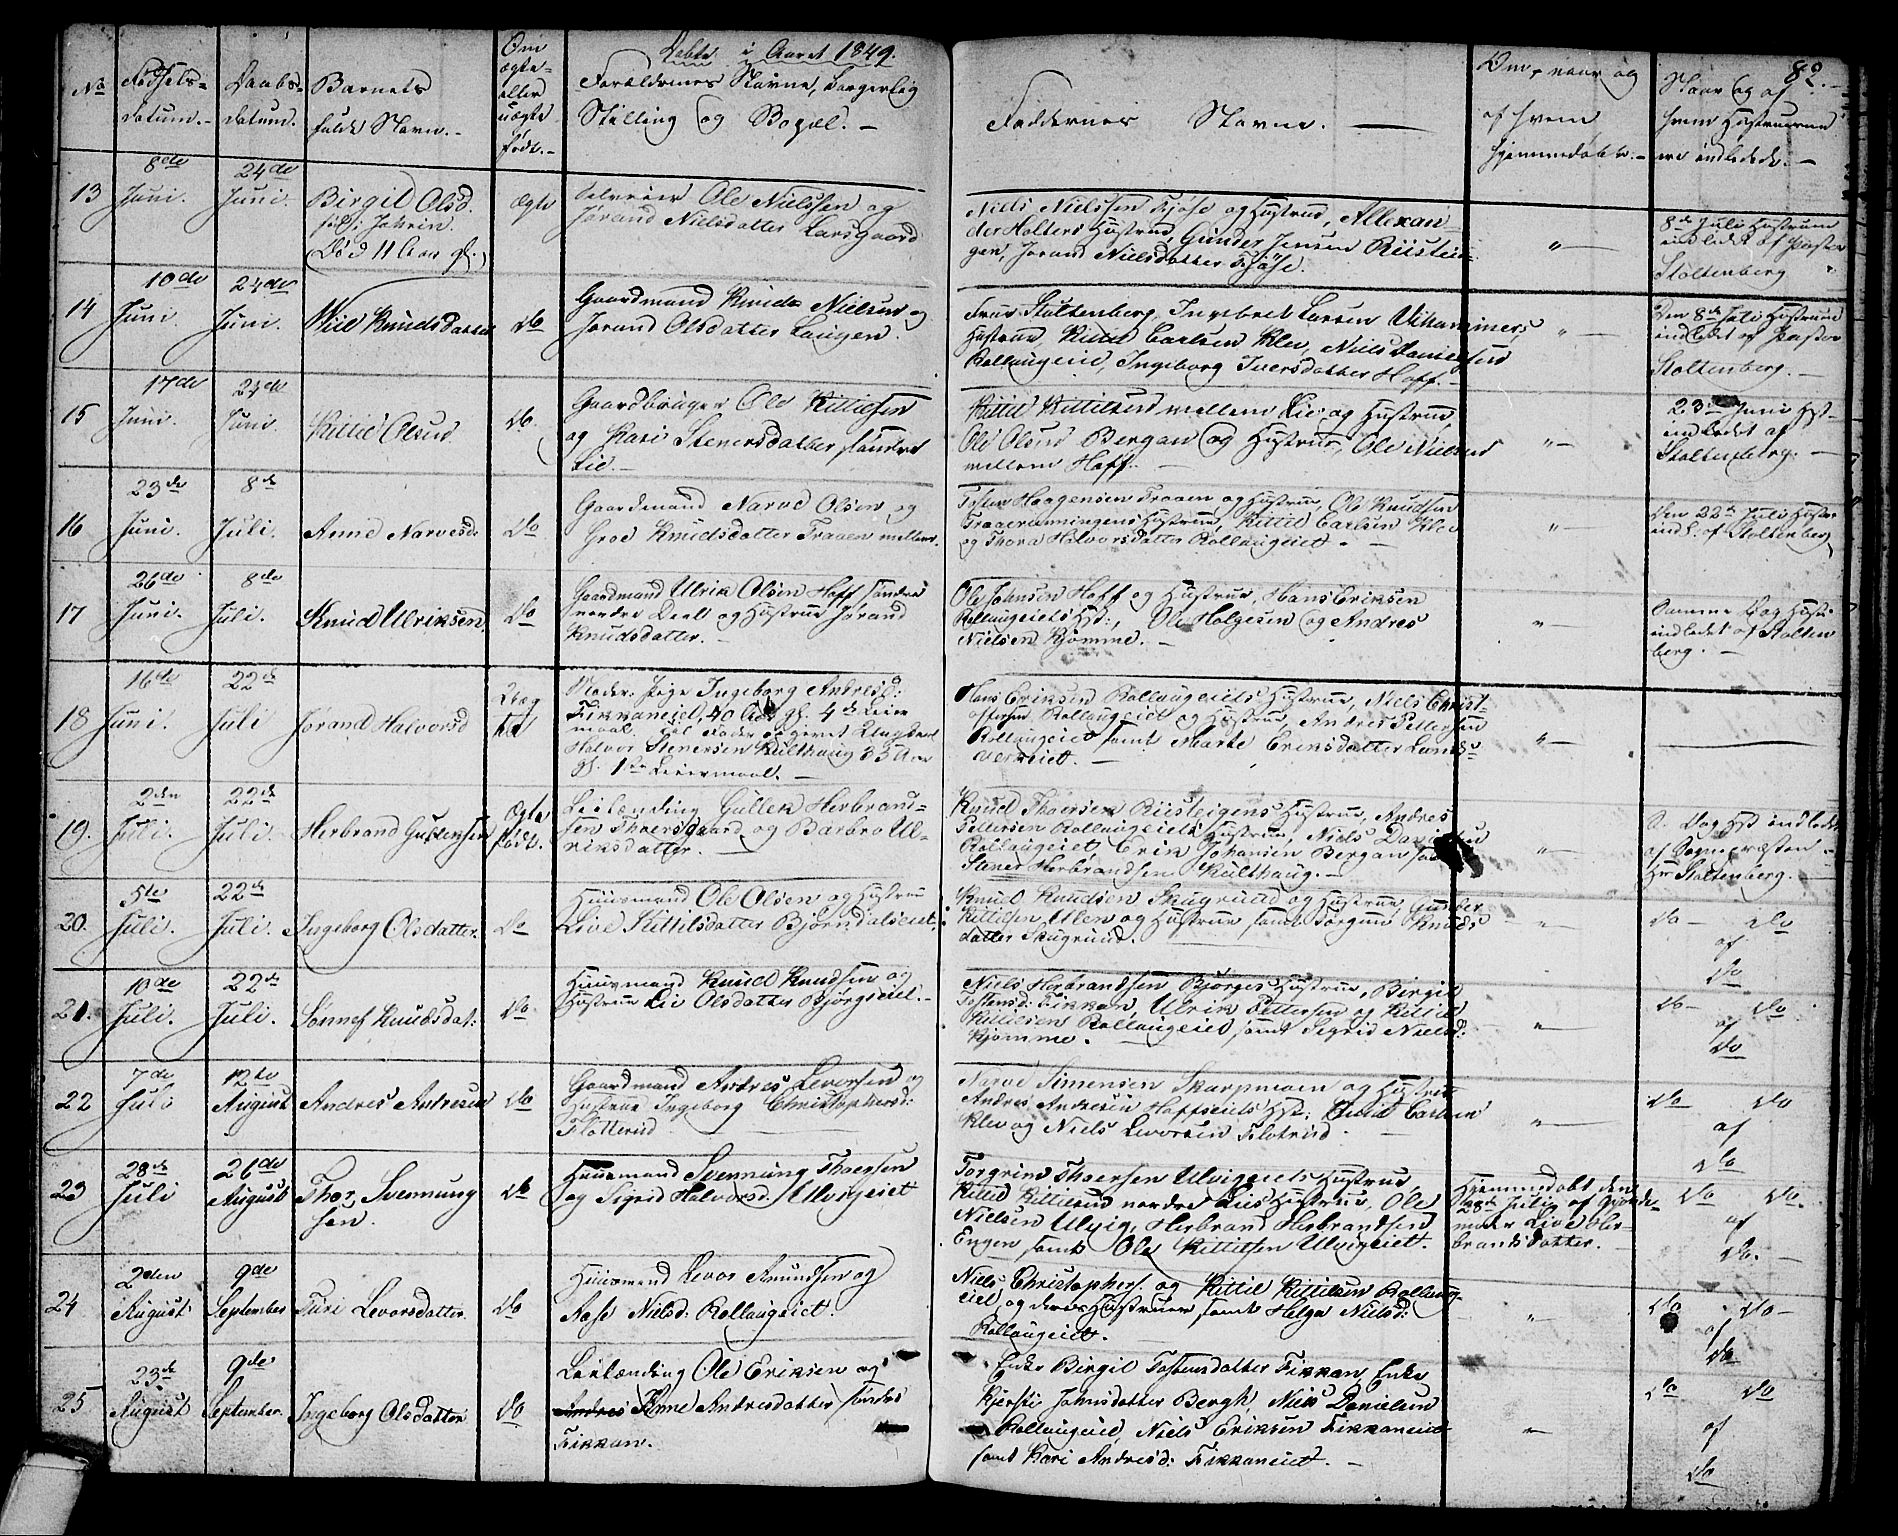 Døbte i Aaret 1849.
82.
No
Fødsels-
datum.
Daabs-
datum.
Barnets
fulde Navn.
Om
ægte
eller
uægte
født.
Forældrenes Navne, borgerlig
Stilling og Bopæl.
Faddernes Navne.
Om, naar og
af hvem
hjemmedøbt.
Naar og af
hvem Hustruerne
ere indledede.
13
8de
Juni.
24de
Juni.
Birgit Olsd.
(Død 11 Aar gl.)
Ægte
Selveier Ole Nielssen og
Jorand Nielsdatter Larsgaard
Niels Nielssen Kjøse og Hustrue, Allexan
der Holters Hustrue, Gunder Jensen Riistei-
gen, Jorand Nielsdatter Kjøse.
"
8de Juli Hustruen
indledet af Pastor
Stoltenberg
14
10de
Juni.
24de
Juni.
Knudsdatter
do
Gaardmand Knud Nielsen og
Jorand Olsdatter Haugen.
Frue Stoltenberg, Ingebret Larsen
Hustrue, Kittil Carlsen Klev, Niels Danielsen
Rollaugeiet, Ingeborg Iversdatter Hoff.
"
Den 8de Juli Hustruen
indledet af Pastor
Stoltenberg.
15
17de
Juni.
24de
Juni.
Kittil Olsen
do.
Gaardbruger Ole Kittilsen
og Kari Stenersdatter søndre
Lie.
Kittil Kittilsen mellem Lie og Hustrue,
Ole Olsen Bergan og Hustrue, Ole Nielsen
mellem Hoff.
"
23de Juni Hst.
indledet af
Stoltenberg.
16
23de
Juni.
8de
Juli.
Anne Narvesd.
do
Gaardmand Narve Olsen og
Groe Knudsdatter Traaen mellem.
Tosten Haagensen Traaen og Hustrue, Ole Knudsen
Hustrue, Kittil Carlsen Klev
og Thora Halvorsdatter Rollaugeiet.
"
Den 22de Juli Hustr.
indl. af Stoltenberg
17
26de
Juni.
8de
Juli.
Knud Ulriksen.
do
Gaardmand Ulrik Olsen Hoff søndre
nordre Deel og Hustrue Jørand
Knudsdatter.
Ole Johnsen Hoff og Hustrue, Hans Eriksen
Rollaugeiets Hst:, Ole Holgesen og Andres
Nielsen Kjømme.
"
Samme Dag Hustr:
indledet af Stolten
berg.
18
16de
Juni.
22de
Juli
Jorand Halvorsd
Uæg
te
Moder: Pige Ingeborg Andresd:
Fikkaneiet, 40 Aar gl. 4de Leier
maal. Til Fader opgivet Ungkarl
Halvor Stenersen Kulthaug 33 Aar
gl. 1ste Leiermaal.
Hans Eriksen Rollaugeiets Hustrue, Niels Christ-
ofersen Rollaugeiet og Hustrue, Andres Pettersen
Rollaugeiet samt Marte Eriksdatter Lands-
verkeiet.
"
19.
2den
Juli.
22de
Juli.
Herbrand Gulleksen
Ægte
født.
Leilænding Gullek Herbrand-
sen Thorsgaard og Barbro Ul-
riksdatter.
Knud Thorsen Riisteigens Hustrue, Andres
Pettersen Rollaugeiets Hustrue, Niels Danielsen
Rollaugeiet Erik Johansen Bergan samt
Stener Herbrandsen Kulthaug.
"
S. Dag Hst indledet
af Sognepræsten
Hr. Stoltenberg.
20.
5te
Juli.
22de
Juli.
Ingeborg Olsdatter.
do
Huusmand Ole Olsen og Hustrue
Live Kittilsdatter Bjørndalseiet.
Knud Knudsen Skugrud og Hustrue, Gunder
Kittilsen Ulen og Hustrue, samt Jørgine Knuds
datter Skugrud.
"
do do
af
do
21.
10de
Juli.
22de
Juli.
Sønnef Knudsdat:
do
Huusmand Knud Knudsen og
Hustrue Liv Olsdatter Bjørgseiet.
Niels Herbrandsen Bjørges Hustrue, Birgit
Tostensd: Fikkan, Ulrik Pettersen og Kittil
Kittilsen Rollaugeiet, samt Sigrid Nielsd:
Kjømme.
"
do do
af
do
22
7de
Juli
12te
August
Andres Andresen
do
Gaardmand Andres Levorsen og
Hustrue Ingeborg Christophersd:
Flotterud
Narve Simensen Skarpmoen og Hustrue
Andres Andresen Hoffseiets Hst: Knud Carlsen
Klev og Niels Levorsen Flotrud
"
do do
af
do
23
28de
Juli
26de
August
Thor Svennung
sen.
do
Huusmand Svennung Thorsen
og Sigrid Halvorsd. Ulvigeiet
Torgrim Thorsen Ulvigeiets Hustrue,
Kittil Kittilsen nordre Lies Hustrue, Ole
Nielsen Ulvig, Herbrand Herbrandsen
Engen, samt Ole Kittilsen Ulvigeiet.
Hjemmedøbt den
28de Juli af Gjorde-
moder Live Her-
brandsdatter.
do do.
af
do.
24
2den
August
9de
September
Turi Levorsdatter.
do
Huusmand Levor Amundsen og
Aase Nielsd: Rollaugeiet
Niels Christophers. og Kittil Kittilsen Rollaug-
eiet og deres Hustruer samt Helge Nielsd:
Rollaugeiet.
"
do do
af
do
25
23de
August
9de
September.
Ingeborg Olsdatter
do
Leilænding Ole Eriksen og
Anne Andresdatter søndre
Fikkan.
Enke Birgit Tostensdatter Fikkan, Enke
Kjersti Johnsdatter Bergh, Niels Danielsen
Rollaugeiet, Niels Eriksen Fikkaneiet
samt Kari Andresd: Fikkaneiet.
"
do do
af
do